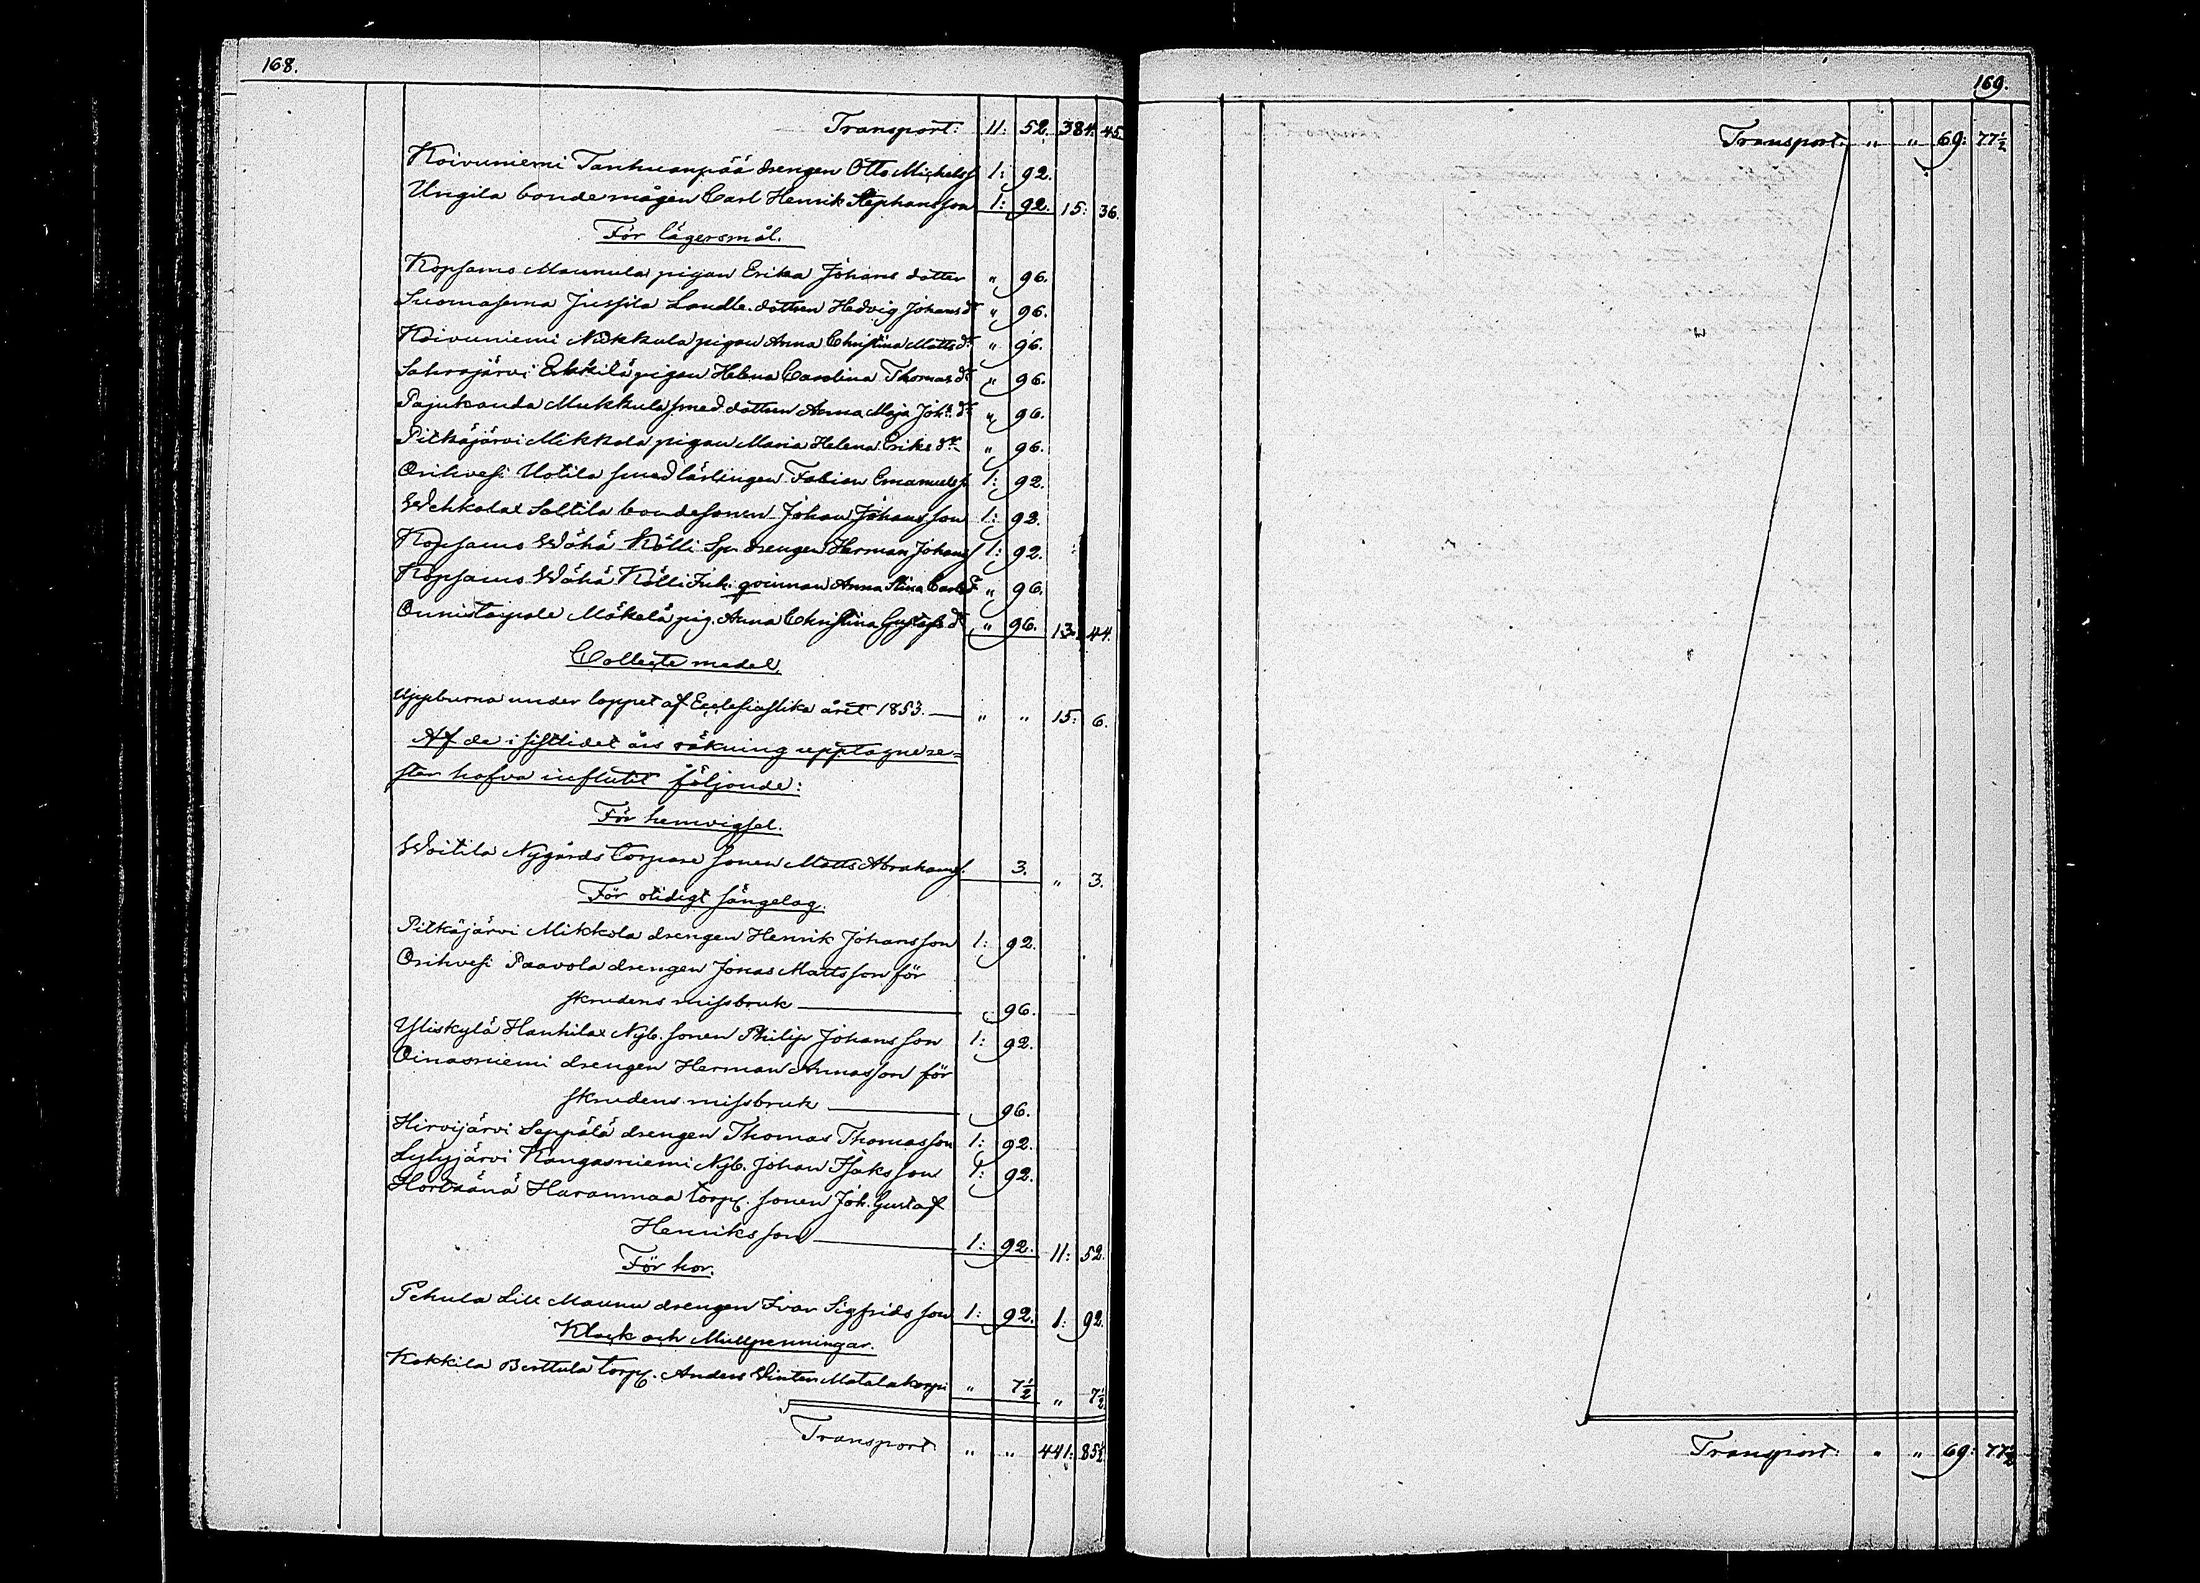 168.
Transport: 11: 52. 384. 45.
Koivuniemi Tanhuanpää drengen Otto Michelss 1: 92.
Ungila bondemågen Carl Henrik Stephansson 1: 92. 15: 36.
För lägersmål.
Kopsamo Maunula pigan Erika Johans dotter " 96.
Suomasema Jussila Landb. dottren Hedvig Johans dr " 96.
Koivuniemi Nikkula pigan Anna Christina Matts dr " 96.
Sahrajärvi Erkkilä pigan Helena Carolina Thomas dr " 96.
Pajukanda Mukkula smed dottren Anna Maja Joh: dr " 96.
Pitkäjärvi Mikkola pigan Maria Helena Eriks dr " 96.
Orihvesi Uotila smedlärlingen Fabian Emanuelss 1: 92.
Wehkalax Saltila bondesonen Johan Johansson 1: 92.
Kopsamo Wähä Kölli Sp. drengen Herman Johanss 1: 92.
Kopsamo Wähä Kölli Inh. qvinnan Anna Stina Carls dr " 96.
Onnistaipale Mäkelä pig. Anna Christina Gustafs dr " 96. 13: 44.
Collecte medel.
Uppburna under loppet af Ecclesiastika året 1853. " " 15: 6.
Af de i sistlidet års räkning upptagne re-
ster hafva influtit följande:
För hemvigsel.
Woitila Nygårds torpare sonen Matts Abrahams. 3. " 3.
För otidigt sängelag.
Pitkäjärvi Mikkola drengen Henrik Johansson 1: 92.
Orihvesi Paavola drengen Jonas Mattsson för
skrudens missbruk 96.
Yliskylä Hankilax Nyb. sonen Philip Johansson 1: 92.
Oinasniemi drengen Herman Annasson för
skrudens missbruk 96.
Hirvijärvi Seppälä drengen Thomas Thomasson 1: 92.
Lylyjärvi Kangasniemi Nyb. Johan Isaksson 1: 92.
Hortaänä Haranmaa torp. sonen Joh. Gustaf
Henriksson 1: 92. 11: 52.
För hor.
Pehula Lill Maunu drengen Ivar Sigfridsson 1: 92. 1: 92.
Klock och Mullpenningar.
Kokkila Berttula torp. Anders Winter Matalakorpi " 7½ " 7½
Transport " " 441: 85½
169.
Transport: " " 69: 77½
Transport: " " 69: 77½